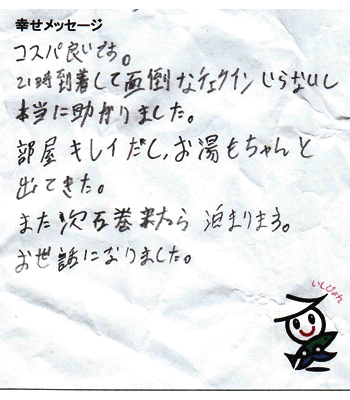 幸せメッセージ
コスパ良いです。
21時到着して面倒なチェクインいらないし
本当に助かりました。
部屋キレイだし、お湯もちゃんと
出てきた。
また次石巻来たら 泊まります。
お世話になりました。
いしぴょん